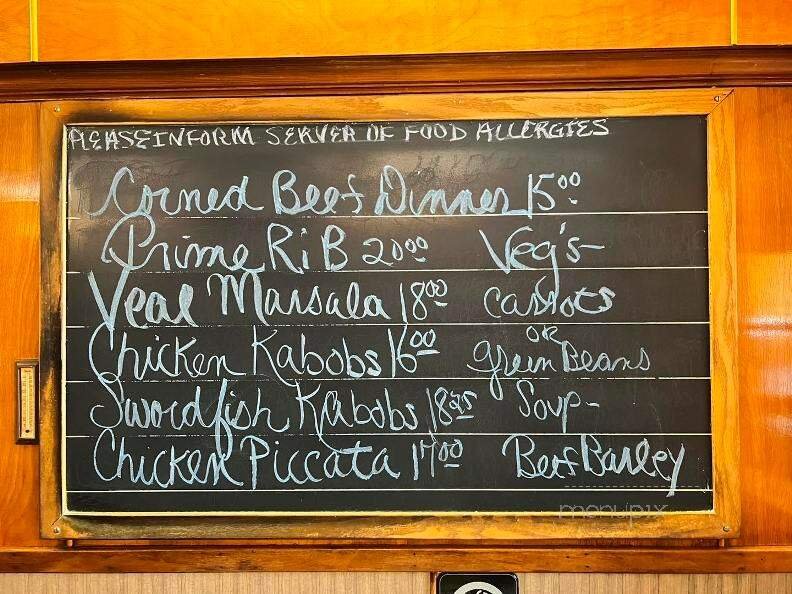 PLEASE INFORM SERVER OF FOOD ALLERGIES
Corned Beef Dinner 15⁰⁰
Prime RiB 20⁰⁰ Veg's-
Veal Marsala 18⁰⁰ carrots
or
Chicken Kabobs 16⁰⁰ green Beans
Swordfish Kabobs 18⁹⁵ Soup-
Chicken Piccata 17⁰⁰ Beef Barley
menupix